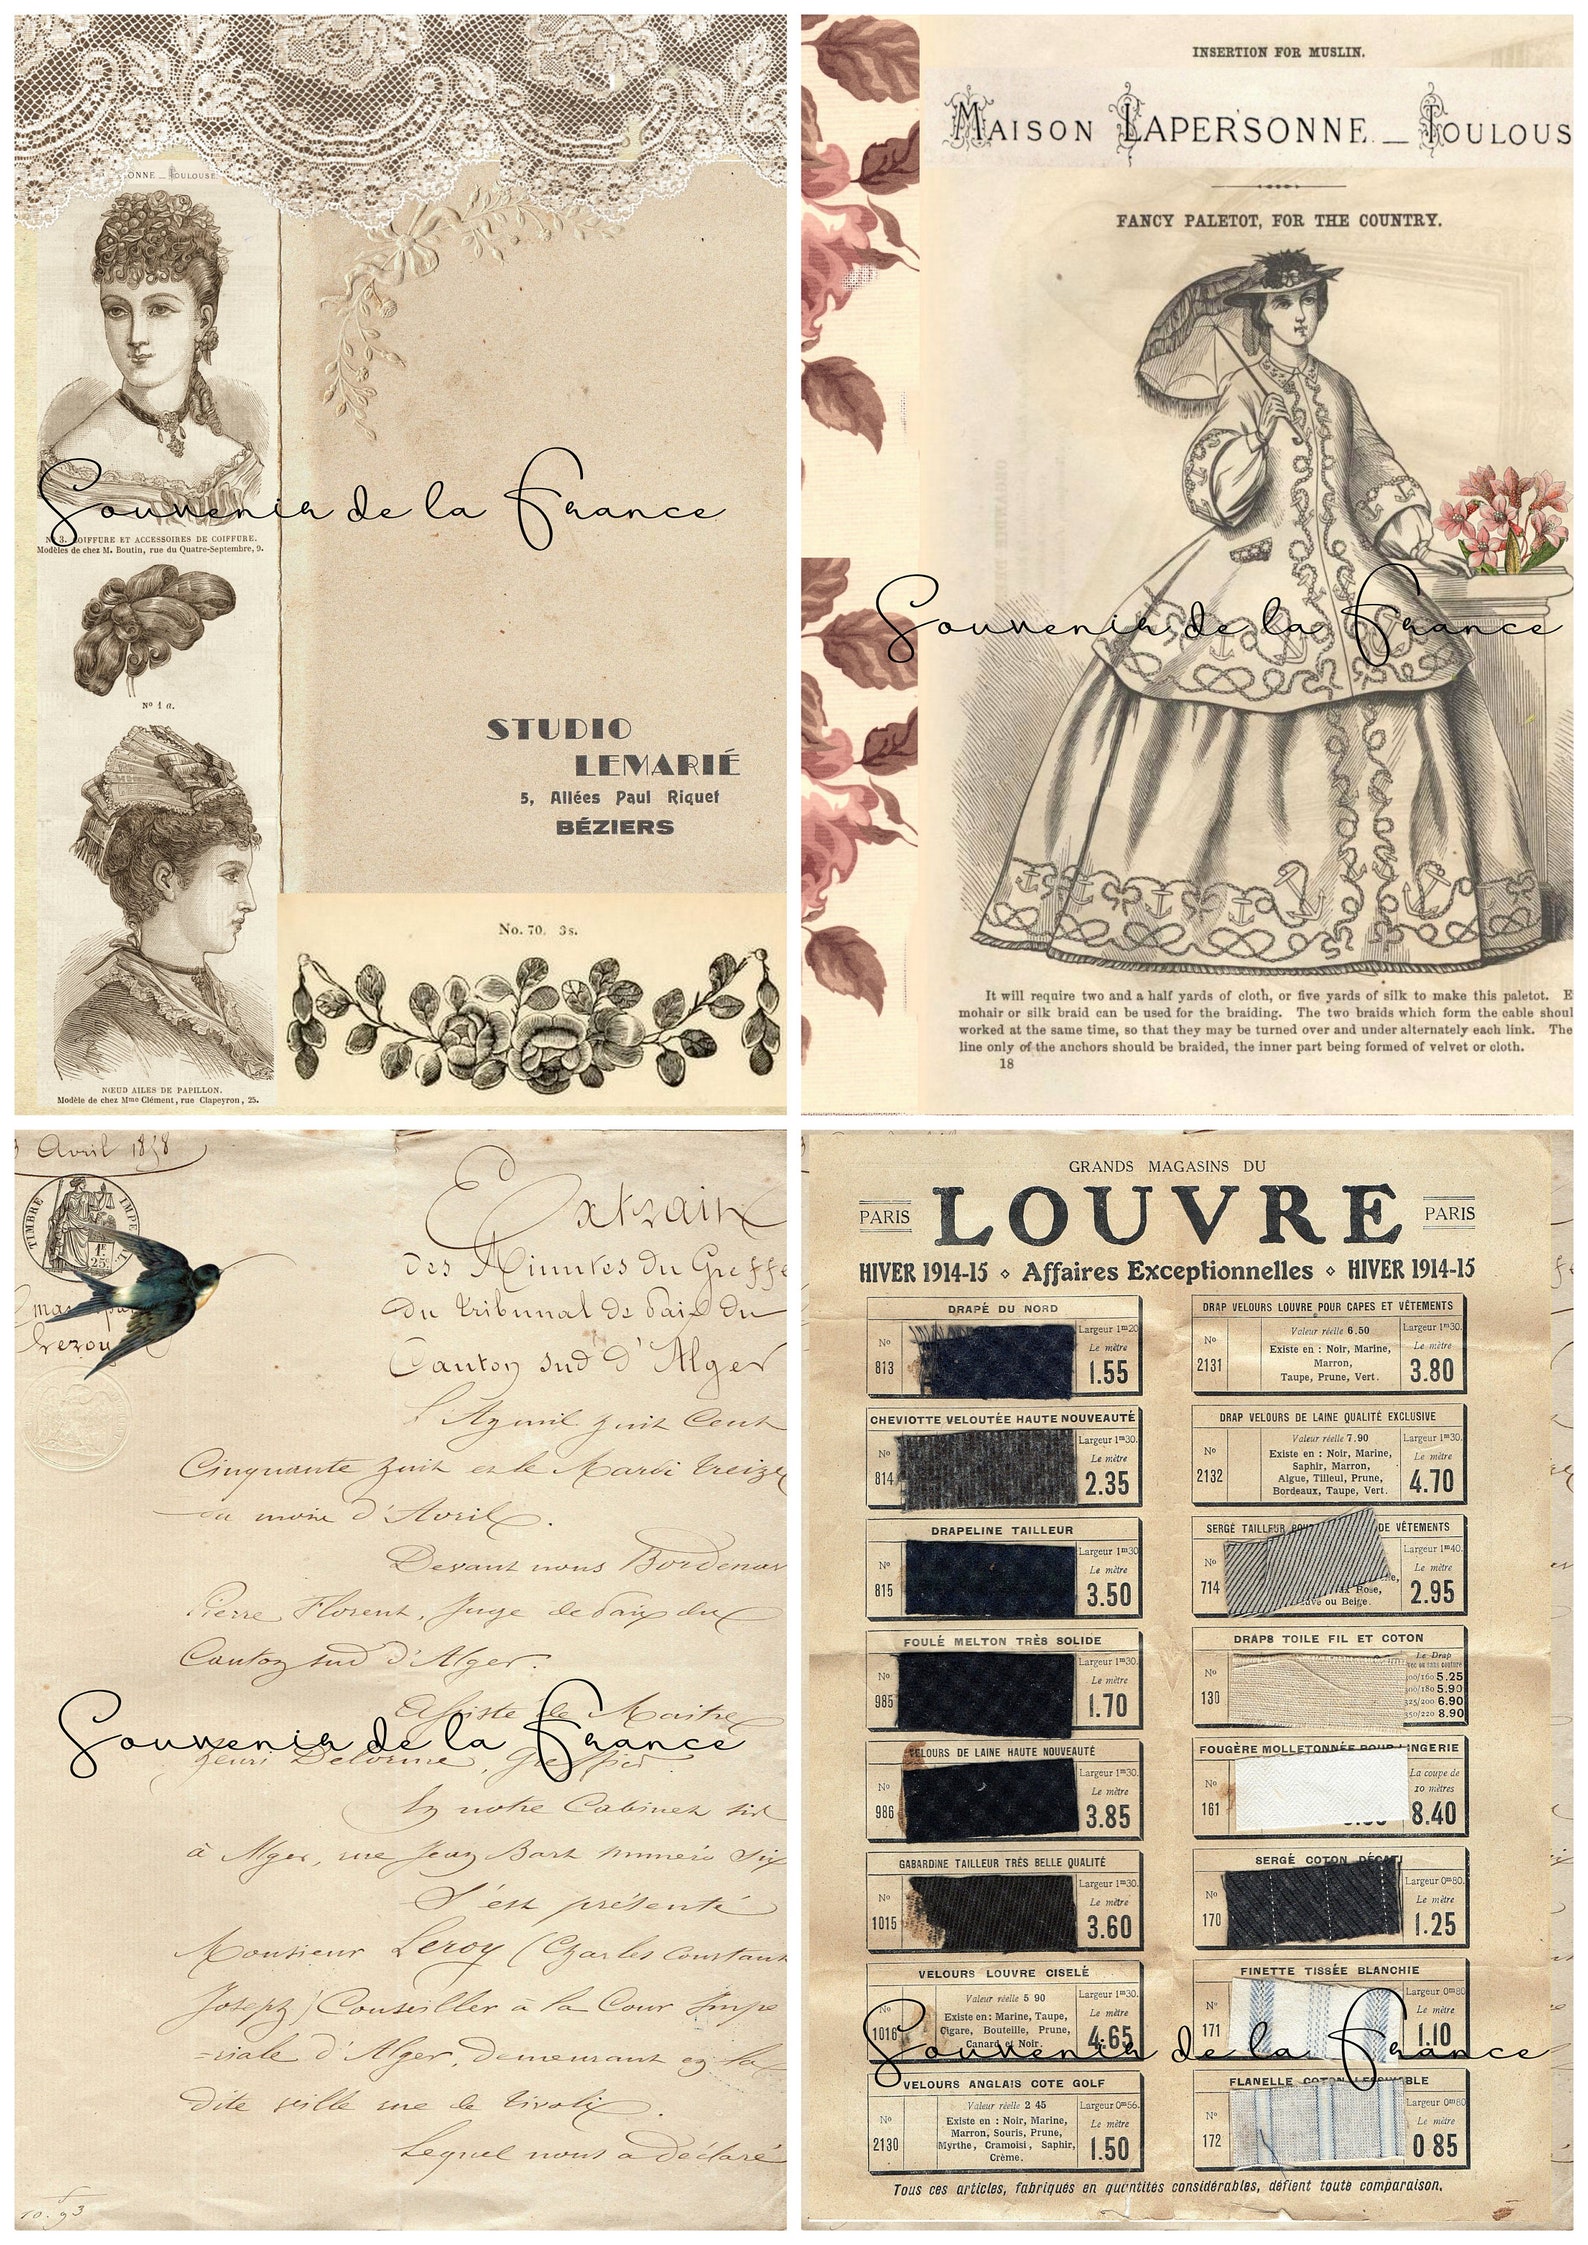 ONNE _ TOULOUSE
Souvenir de la France
No 3. COIFFURE ET ACCESSOIRES DE COIFFURE.
Modèles de chez M. Boutin, rue du Quatre-Septembre, 9.
No 1 a.
STUDIO
LEMARIÉ
5, Allées Paul Riquet
BÉZIERS
No. 70. 3s.
NŒUD AILES DE PAPILLON.
Modèle de chez Mme Clément, rue Clapeyron, 25.
INSERTION FOR MUSLIN.
MAISON LAPERSONNE _ TOULOUS
FANCY PALETOT, FOR THE COUNTRY.
Souvenir de la France
It will require two and a half yards of cloth, or five yards of silk to make this paletot. E
mohair or silk braid can be used for the braiding. The two braids which form the cable shoul
worked at the same time, so that they may be turned over and under alternately each link. The
line only of the anchors should be braided, the inner part being formed of velvet or cloth.
18
Avril 1858
TIMBRE IMPE
1F.
25
Extrait
des Minutes du Greffe
du tribunal de Paix du
Canton sud d'Alger
L'An mil huit Cent
Cinquante huit et le Mardi treize
du mois d'Avril.
Devant nous Bordenav
Pierre Florent, Juge de Paix du
Canton sud d'Alger.
Assisté de Maitre
Souvenir de la France
Henri Delorme, Greffier.
En notre Cabinet sis
à Alger, rue Jean Bart numéro six
S'est présenté
Monsieur Leroy (Charles Constant
Joseph) Conseiller à la Cour Impé
=riale d'Alger, demeurant en la
dite ville rue de Tivoli.
Lequel nous a déclaré
GRANDS MAGASINS DU
PARIS LOUVRE PARIS
HIVER 1914-15 ⋄ Affaires Exceptionnelles ⋄ HIVER 1914-15
DRAPÉ DU NORD
No 813
Largeur 1m20
Le mètre
1.55
CHEVIOTTE VELOUTÉE HAUTE NOUVEAUTÉ
No 814
Largeur 1m30.
Le mètre
2.35
DRAPELINE TAILLEUR
No 815
Largeur 1m30
Le mètre
3.50
FOULÉ MELTON TRÈS SOLIDE
No 985
Largeur 1m30.
Le mètre
1.70
VELOURS DE LAINE HAUTE NOUVEAUTÉ
No 986
Largeur 1m30.
Le mètre
3.85
GABARDINE TAILLEUR TRÈS BELLE QUALITÉ
No 1015
Largeur 1m30.
Le mètre
3.60
VELOURS LOUVRE CISELÉ
No 1016
Valeur réelle 5 90
Existe en : Marine, Taupe,
Cigare, Bouteille, Prune,
Canard et Noir.
Largeur 1m30.
Le mètre
4.65
VELOURS ANGLAIS COTE GOLF
No 2130
Valeur réelle 2 45
Existe en : Noir, Marine,
Marron, Souris, Prune,
Myrthe, Cramoisi, Saphir,
Crème.
Largeur 0m56.
Le mètre
1.50
DRAP VELOURS LOUVRE POUR CAPES ET VÊTEMENTS
No 2131
Valeur réelle 6.50
Existe en : Noir, Marine,
Marron,
Taupe, Prune, Vert.
Largeur 1m30.
Le mètre
3.80
DRAP VELOURS DE LAINE QUALITÉ EXCLUSIVE
No 2132
Valeur réelle 7.90
Existe en : Noir, Marine,
Saphir, Marron,
Algue, Tilleul, Prune,
Bordeaux, Taupe, Vert.
Largeur 1m30.
Le mètre
4.70
SERGÉ TAILLEUR POUR DE VÊTEMENTS
No 714
Rose,
ou Beige.
Largeur 1m40.
Le mètre
2.95
DRAPS TOILE FIL ET COTON
No 130
Le Drap
5.25
5.90
325/200 6.90
350/220 8.90
FOUGÈRE MOLLETONNÉE POUR LINGERIE
No 161
La coupe de
10 mètres
8.40
SERGÉ COTON DÉCATI
No 170
Largeur 0m80.
Le mètre
1.25
FINETTE TISSÉE BLANCHIE
No 171
Largeur 0m80
Le mètre
1.10
Souvenir de la France
FLANELLE COTON
No 172
Largeur 0m80
Le mètre
0 85
Tous ces articles, fabriqués en quantités considérables, défient toute comparaison.